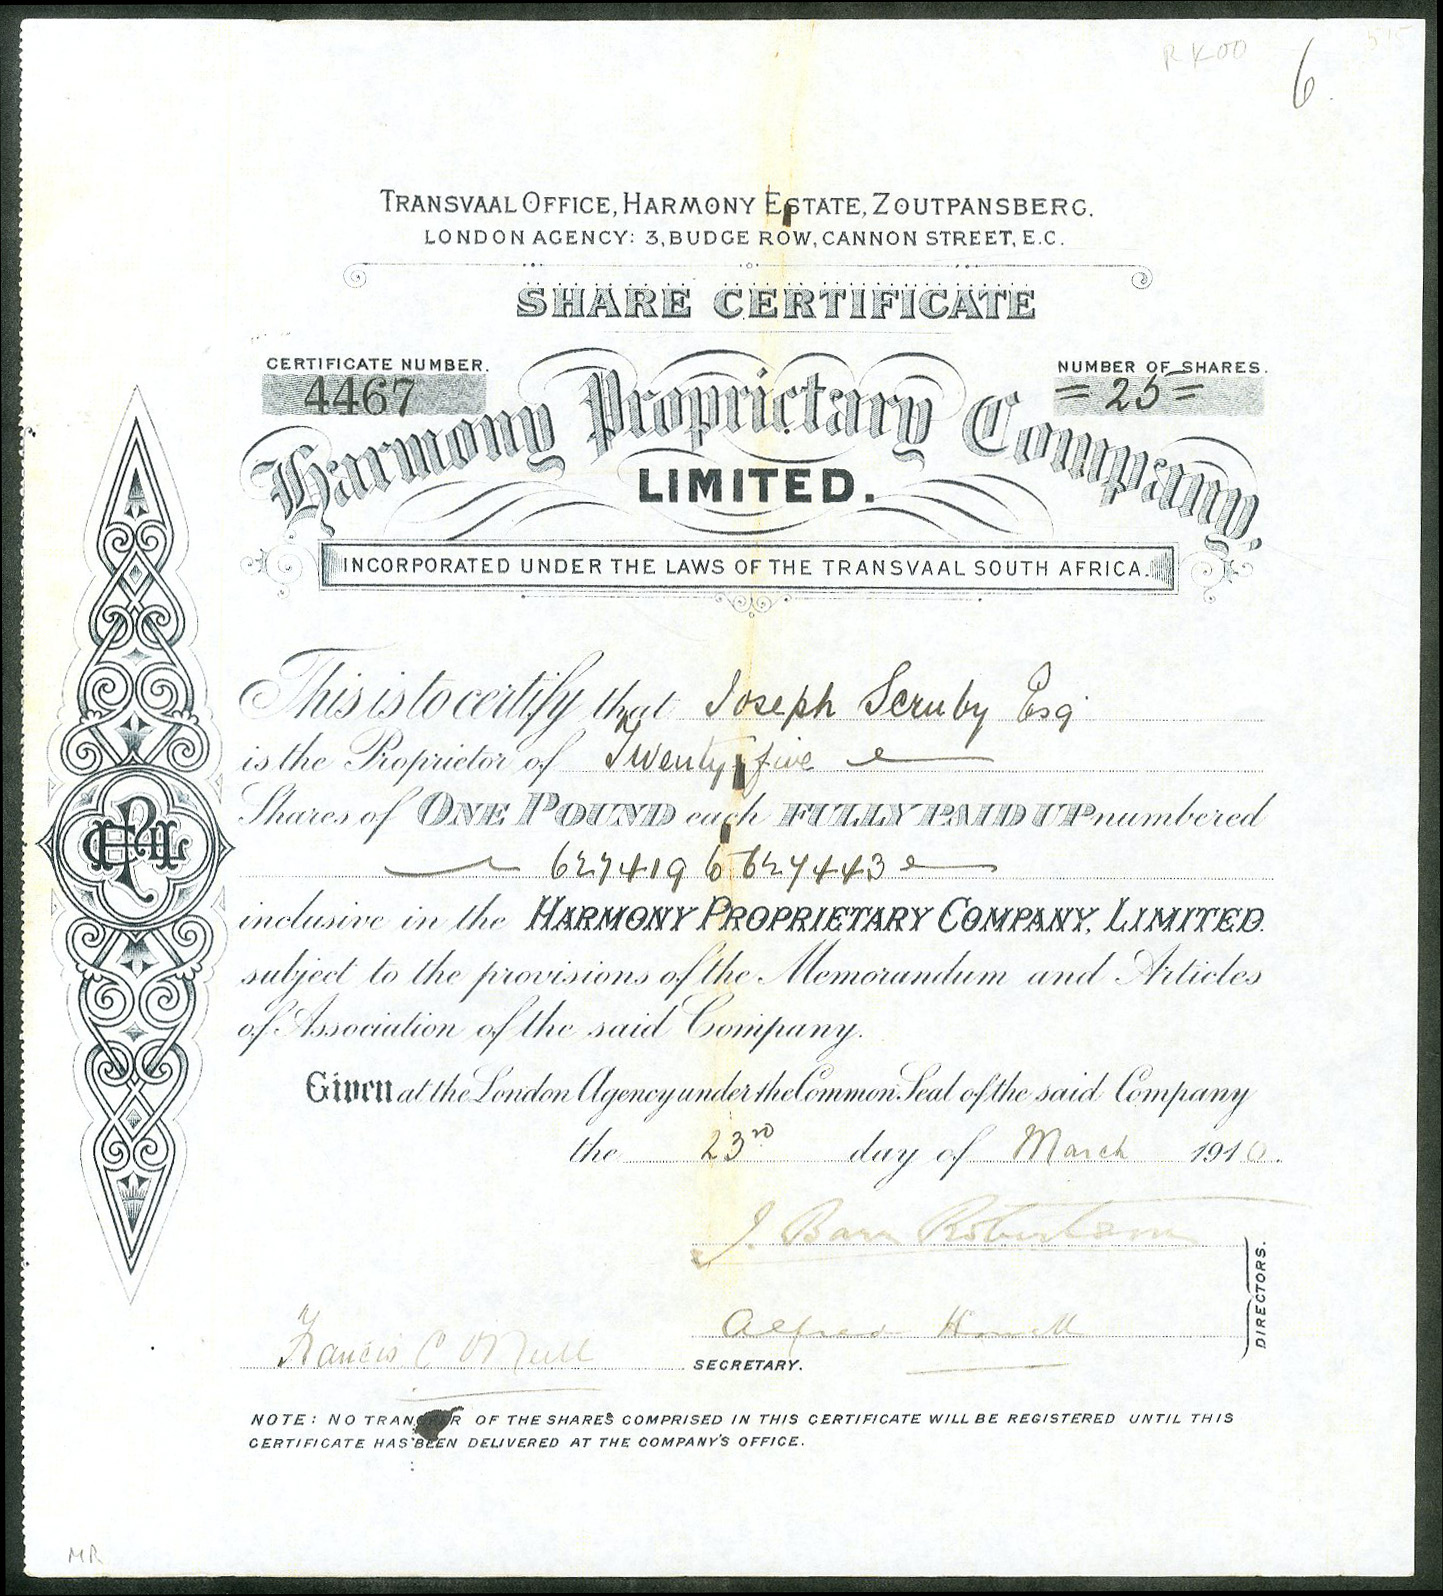 R K00
6
TRANSVAAL OFFICE, HARMONY ESTATE, ZOUTPANSBERG.
LONDON AGENCY: 3, BUDGE ROW, CANNON STREET, E.C.
SHARE CERTIFICATE
CERTIFICATE NUMBER.
4467
NUMBER OF SHARES.
= 25 =
Harmony Proprietary Company,
LIMITED.
INCORPORATED UNDER THE LAWS OF THE TRANSVAAL SOUTH AFRICA.
This is to certify that Joseph Scruby Esq
is the Proprietor of Twenty five
Shares of ONE POUND each FULLY PAID UP numbered
627419 to 627443
inclusive in the HARMONY PROPRIETARY COMPANY, LIMITED.
subject to the provisions of the Memorandum and Articles
of Association of the said Company.
Given at the London Agency under the Common Seal of the said Company
the 23rd day of March 1910.
J. Barr Robertson
DIRECTORS.
Alfred
Francis C O'Neill
SECRETARY.
NOTE: NO TRANSFER OF THE SHARES COMPRISED IN THIS CERTIFICATE WILL BE REGISTERED UNTIL THIS
CERTIFICATE HAS BEEN DELIVERED AT THE COMPANY'S OFFICE.
MR